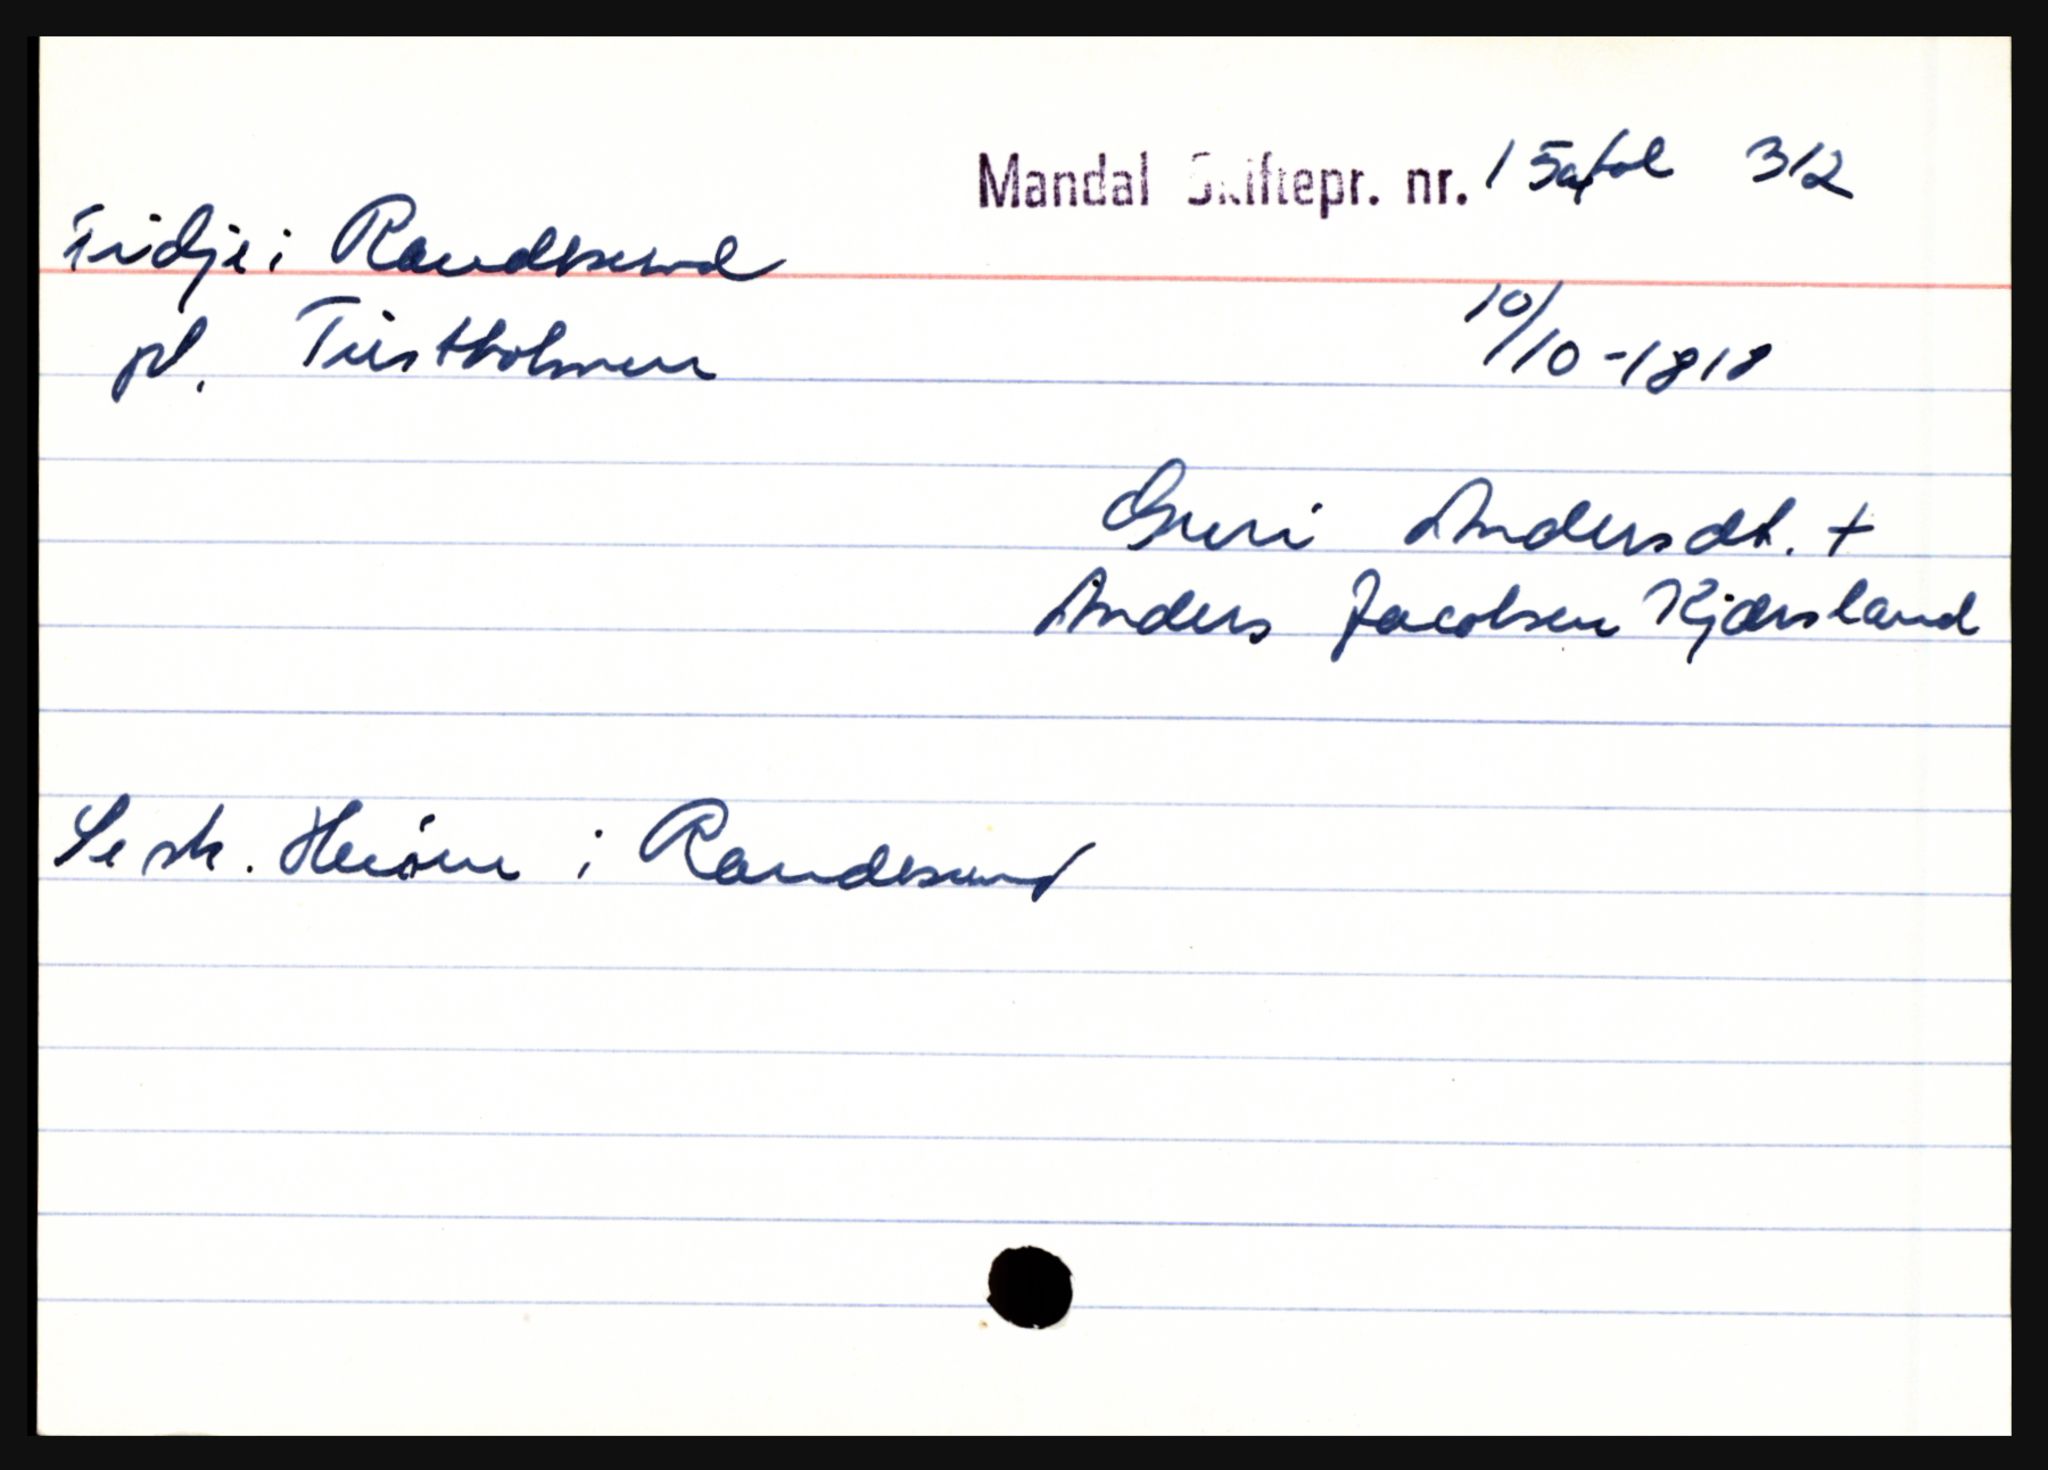 Mandal Skiftepr. nr. 15a fol 312
Fidje i Randesund
pl. Tistholmen
10/10-1818
Guri Andersdt. +
Anders Jacobsen Kjærsland
Se sk. i Randesund